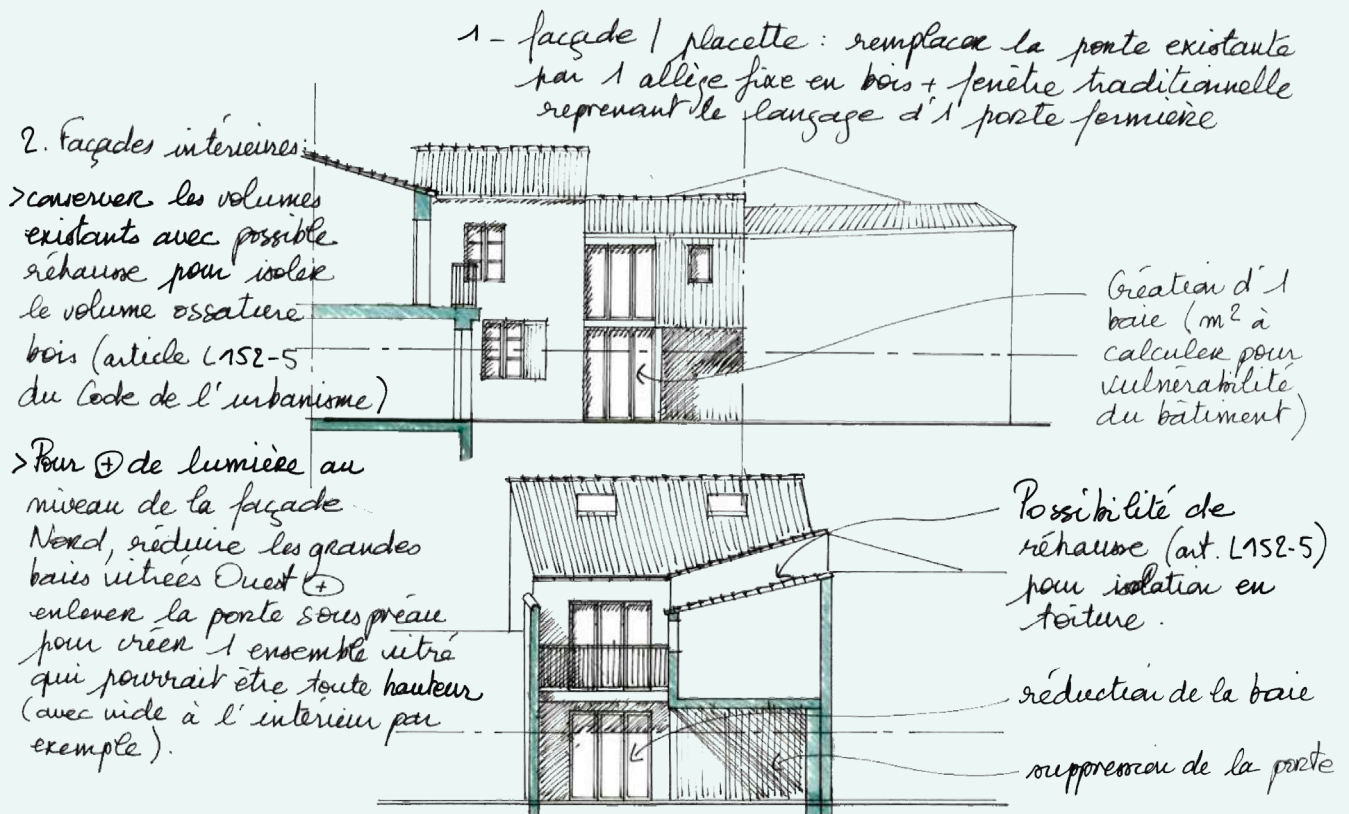 1 - façade / placette : remplacer la porte existante
par 1 allège fixe en bois + fenêtre traditionnelle
reprenant le langage d'1 porte fermière
2. Façades intérieures:
> conserver les volumes
existants avec possible
réhausse pour isoler
le volume ossature
bois (article L152-5
du Code de l'urbanisme)
> Pour + de lumière au
niveau de la façade
Nord, réduire les grandes
baies vitrées Ouest +
enlever la porte sous préau
pour créer 1 ensemble vitré
qui pourrait être toute hauteur
(avec vide à l'intérieur par
exemple).
Création d'1
baie (m² à
calculer pour
vulnérabilité
du bâtiment)
Possibilité de
réhausse (art. L152-5)
pour isolation en
toiture.
réduction de la baie
suppression de la porte